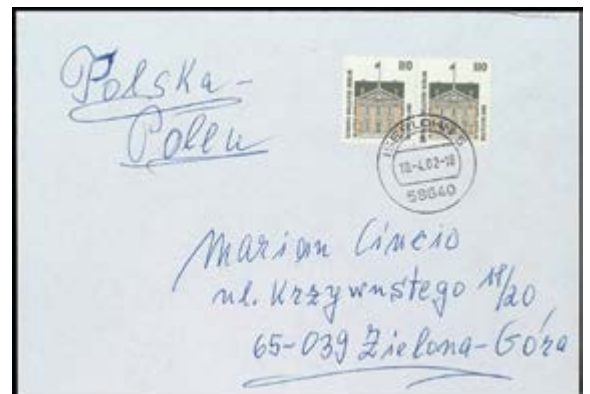 Polska-
Polen
80 80
ISERLOHN 6
18-4.02-18
58640
Marian Cincio
ul. Krzywustego 18/20,
65-039 Zielona-Góra